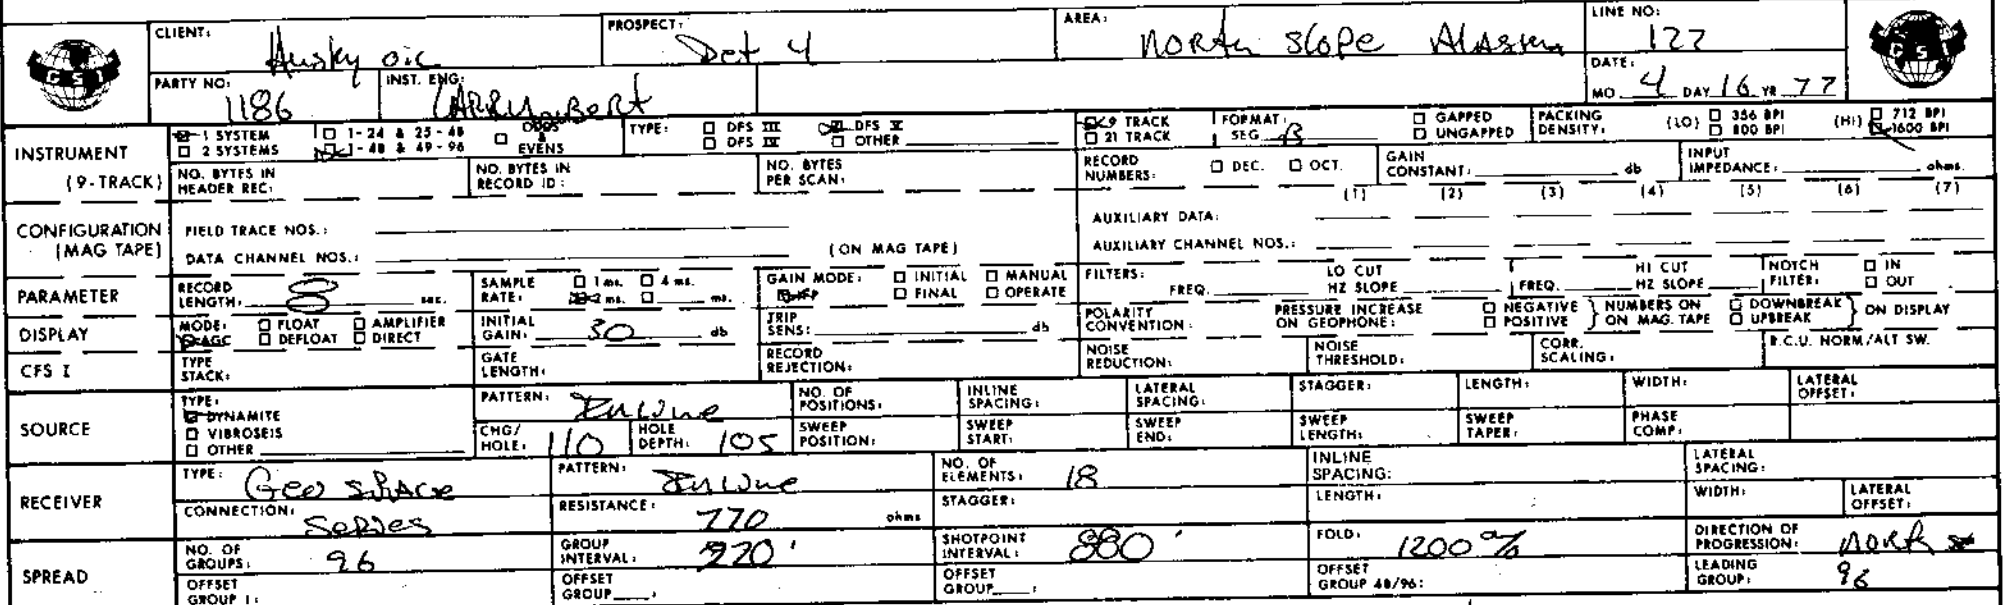 CLIENT: Husky oil PROSPECT: Det 4 AREA: North Slope Alaska LINE NO: 122
GSI
PARTY NO: 1186 INST. ENG: LARRY DATE: MO 4 DAY 16 YR 77
GSI
INSTRUMENT (9-TRACK)
☒ 1 SYSTEM ☐ 1-24 & 25-48 ☐ ODDS & EVENS TYPE: ☐ DFS III ☒ DFS V ☒ 9 TRACK FORMAT: SEG B ☐ GAPPED PACKING DENSITY: (LO) ☐ 356 BPI (HI) ☐ 712 BPI
☐ 2 SYSTEMS ☒ 1-48 & 49-96 ☐ DFS IV ☐ OTHER ☐ 21 TRACK ☐ UNGAPPED ☐ 800 BPI ☒ 1600 BPI
NO. BYTES IN HEADER REC: NO. BYTES IN RECORD ID: NO. BYTES PER SCAN: RECORD NUMBERS: ☐ DEC. ☐ OCT. GAIN CONSTANT: db INPUT IMPEDANCE: ohms.
CONFIGURATION (MAG TAPE)
(1) (2) (3) (4) (5) (6) (7)
FIELD TRACE NOS.: AUXILIARY DATA:
DATA CHANNEL NOS.: (ON MAG TAPE) AUXILIARY CHANNEL NOS.:
PARAMETER
RECORD LENGTH: 8 sec. SAMPLE RATE: ☐ 1 ms. ☐ 4 ms. ☒ 2 ms. ☐ ms. GAIN MODE: ☐ INITIAL ☐ MANUAL ☒ IFP ☐ FINAL ☐ OPERATE FILTERS: FREQ. LO CUT HZ SLOPE FREQ. HI CUT HZ SLOPE NOTCH FILTER: ☐ IN ☐ OUT
DISPLAY
MODE: ☐ FLOAT ☐ AMPLIFIER ☒ AGC ☐ DEFLOAT ☐ DIRECT INITIAL GAIN: 30 db TRIP SENS: db POLARITY CONVENTION: PRESSURE INCREASE ON GEOPHONE: ☐ NEGATIVE ☐ POSITIVE } NUMBERS ON ON MAG. TAPE ☐ DOWNBREAK ☐ UPBREAK } ON DISPLAY
CFS I
TYPE STACK: GATE LENGTH: RECORD REJECTION: NOISE REDUCTION: NOISE THRESHOLD: CORR. SCALING: R.C.U. NORM/ALT SW.
SOURCE
TYPE: ☒ DYNAMITE ☐ VIBROSEIS ☐ OTHER PATTERN: Inline NO. OF POSITIONS: INLINE SPACING: LATERAL SPACING: STAGGER: LENGTH: WIDTH: LATERAL OFFSET:
CHG/HOLE: 110 HOLE DEPTH: 105 SWEEP POSITION: SWEEP START: SWEEP END: SWEEP LENGTH: SWEEP TAPER: PHASE COMP:
RECEIVER
TYPE: Geo space PATTERN: Inline NO. OF ELEMENTS: 18 INLINE SPACING: LATERAL SPACING:
CONNECTION: Series RESISTANCE: 770 ohms STAGGER: LENGTH: WIDTH: LATERAL OFFSET:
SPREAD
NO. OF GROUPS: 96 GROUP INTERVAL: 220' SHOTPOINT INTERVAL: 880' FOLD: 1200% DIRECTION OF PROGRESSION: North
OFFSET GROUP 1: OFFSET GROUP : OFFSET GROUP : OFFSET GROUP 48/96: LEADING GROUP: 96